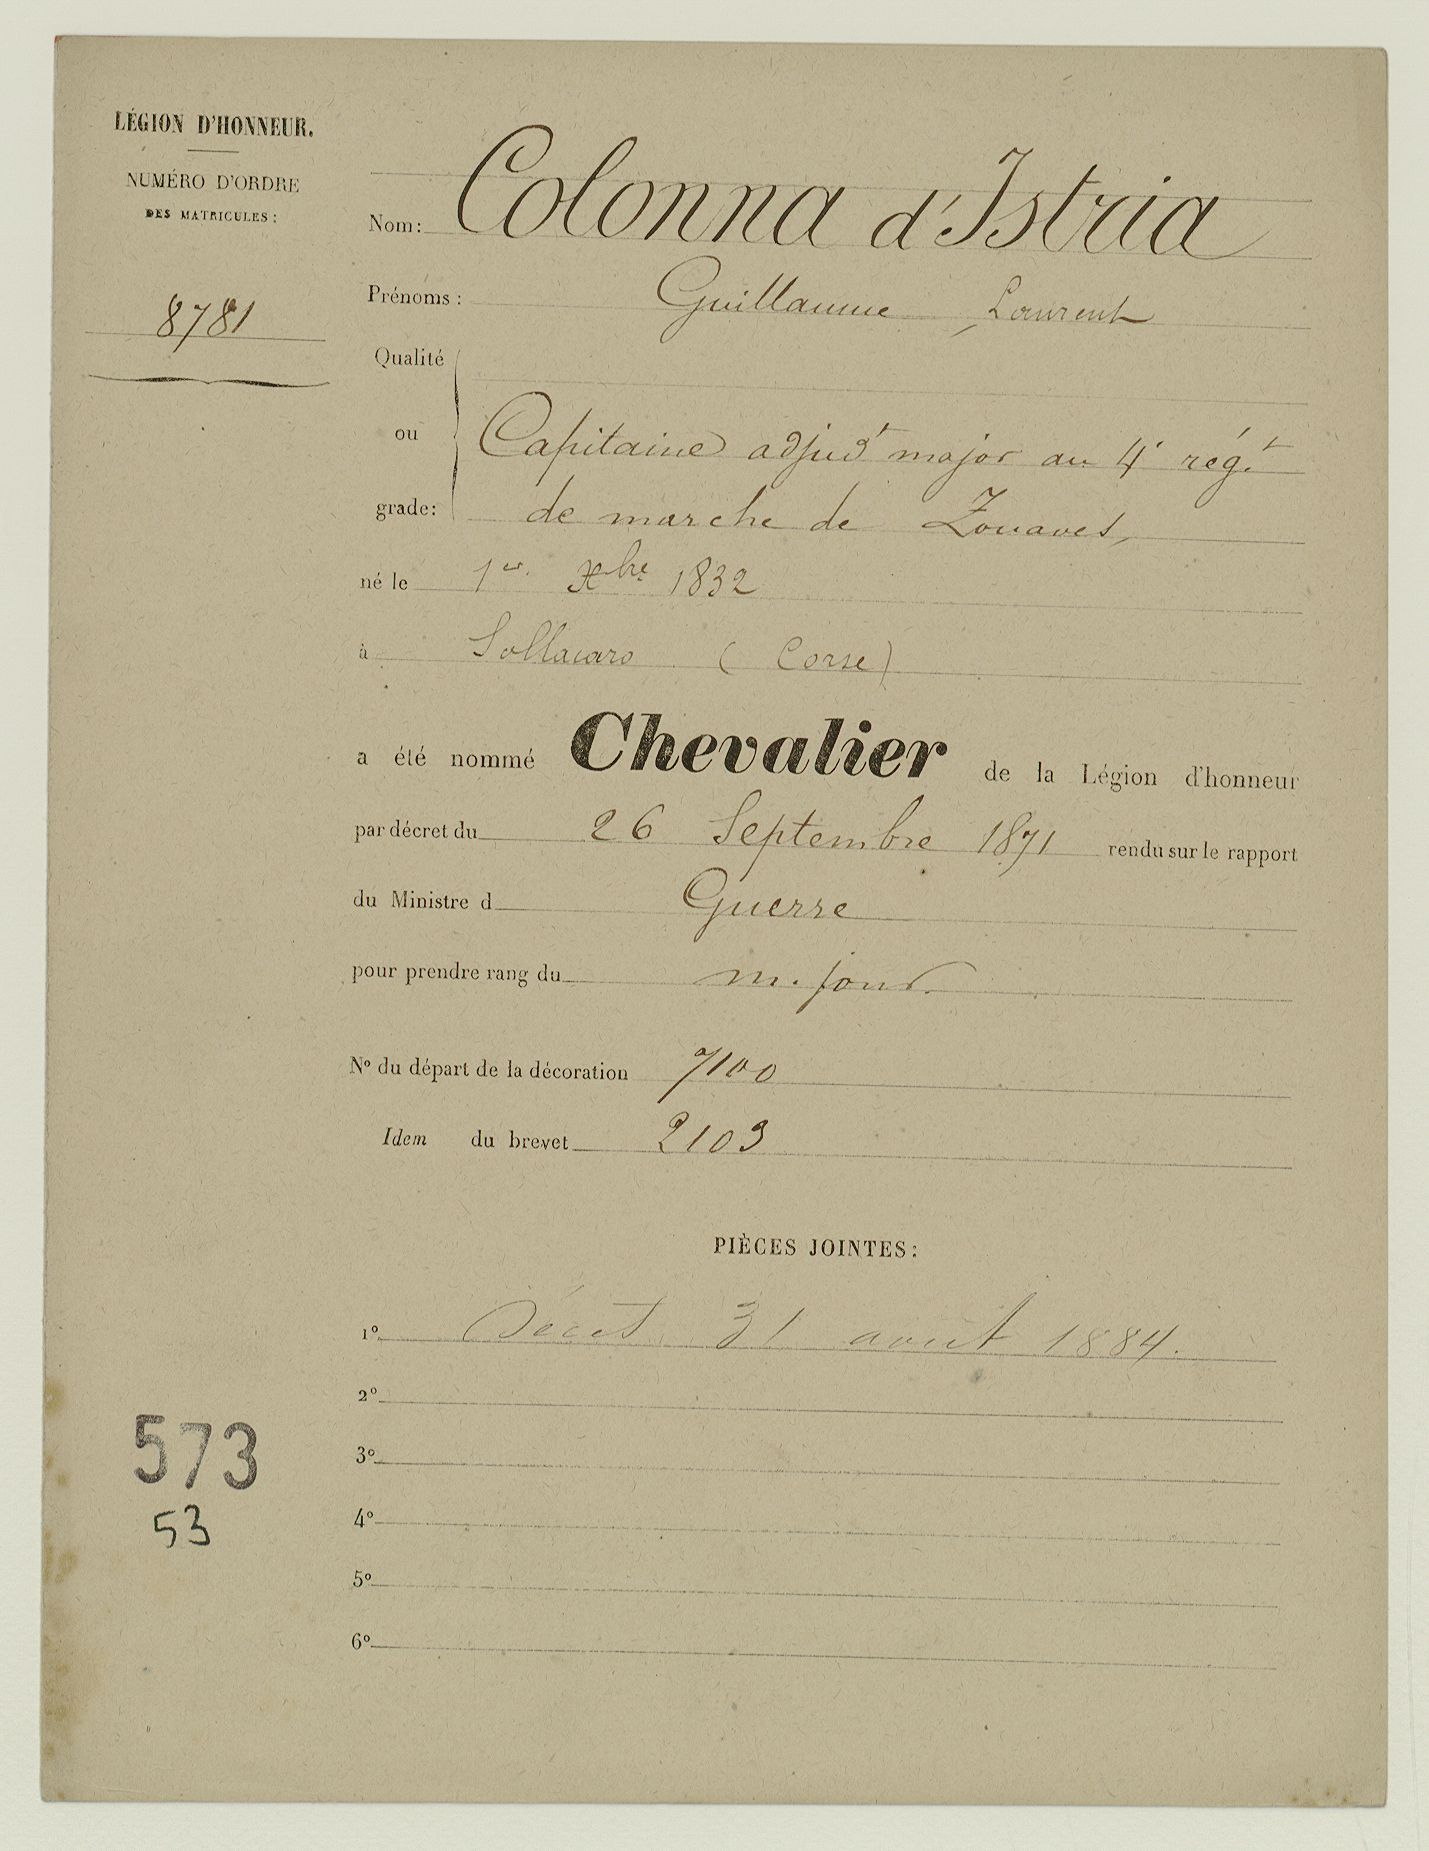 LÉGION D'HONNEUR.
NUMÉRO D'ORDRE
DES MATRICULES :
8781
Nom : Colonna d'Istria
Prénoms : Guillaume Laurent
Qualité
ou
grade :
Capitaine adjud^t major au 4^e rég.^t
de marche de Zouaves,
né le 1^er Xbre 1832
à Sollacaro (Corse)
a été nommé Chevalier de la Légion d'honneur
par décret du 26 Septembre 1871 rendu sur le rapport
du Ministre d Guerre
pour prendre rang du m. jour.
N° du départ de la décoration 7100
Idem du brevet 2103
PIÈCES JOINTES :
1° Décès 31 aout 1884.
2°
3°
4°
5°
6°
573
53